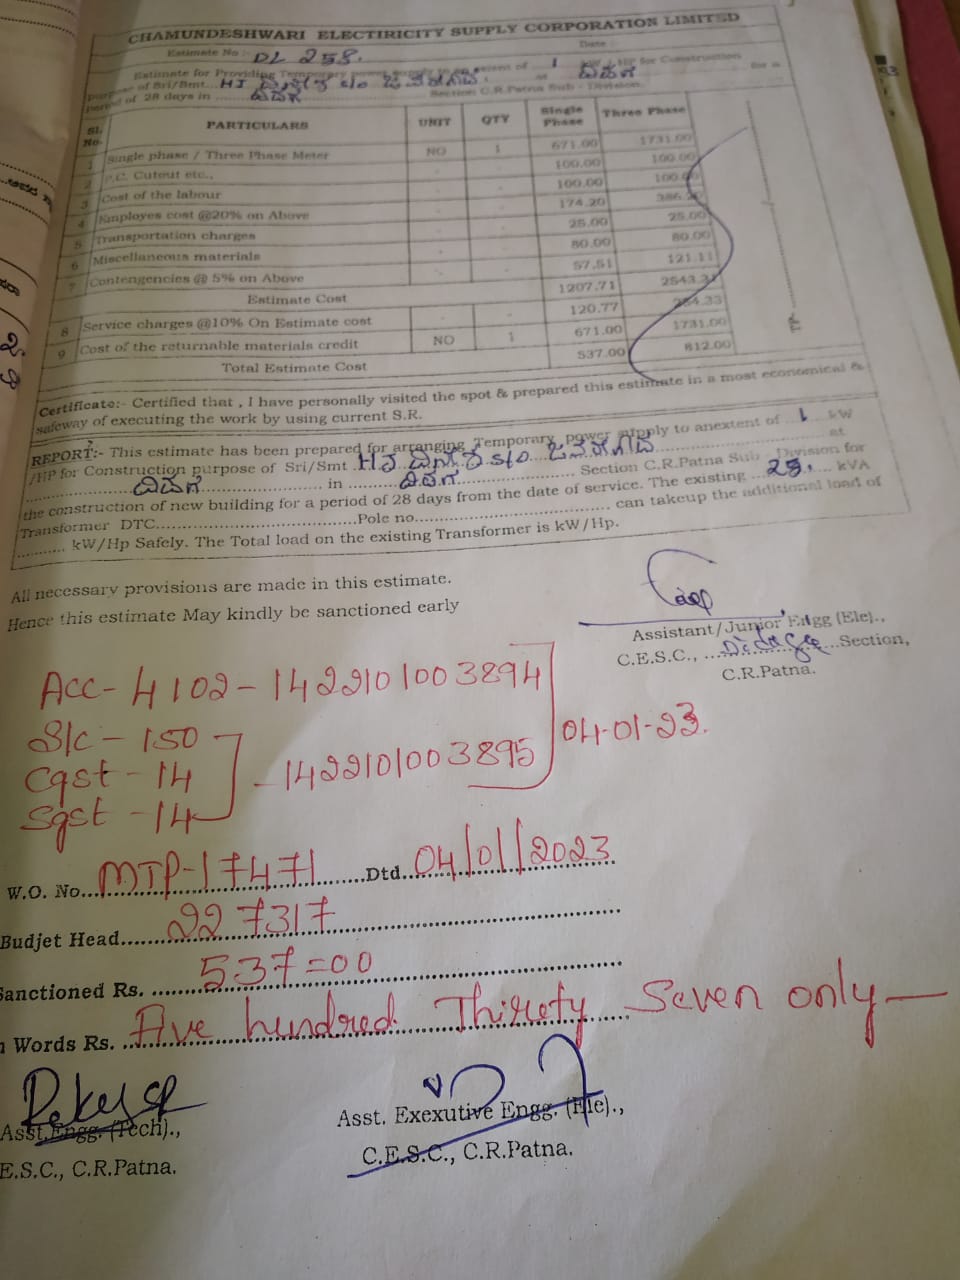 CHAMUNDESHWARI ELECTIRICITY SUPPLY CORPORATION LIMITED
Estimate No :- DL 258. Date :
Estimate for Providing Temporary power supply to an extent of 1 kW / HP for Construction
purpose of Sri/Smt... HJ ಜವರೇಗೌಡ at ದಿಡಗ for a
period of 28 days in ದಿಡಗ Section C.R.Patna Sub - Division.
Sl. No. PARTICULARS UNIT QTY Single Phase Three Phase
1 Single phase / Three Phase Meter NO 1 671.00 1731.00
2 P.C. Cutout etc., - - 100.00 100.00
3 Cost of the labour - - 100.00 100.00
4 Employes cost @20% on Above - - 174.20 386.20
5 Transportation charges - - 25.00 25.00
6 Miscellaneous materials - - 80.00 80.00
7 Contengencies @ 5% on Above - - 57.51 121.11
Estimate Cost 1207.71 2543.31
8 Service charges @10% On Estimate cost - - 120.77 254.33
9 Cost of the returnable materials credit NO 1 671.00 1731.00
Total Estimate Cost 537.00 812.00
Certificate:- Certified that , I have personally visited the spot & prepared this estimate in a most economical &
safeway of executing the work by using current S.R.
REPORT:- This estimate has been prepared for arranging Temporary power supply to anextent of 1 kW
/HP for Construction purpose of Sri/Smt HJ s/o ಜವರೇಗೌಡ at
ದಿಡಗ in ದಿಡಗ Section C.R.Patna Sub - Division for
the construction of new building for a period of 28 days from the date of service. The existing 25, kVA
Transformer DTC Pole no can takeup the additional load of
kW/Hp Safely. The Total load on the existing Transformer is kW/Hp.
All necessary provisions are made in this estimate.
Hence this estimate May kindly be sanctioned early
Assistant/Junior Engg (Ele).,
C.E.S.C., Didaga Section,
C.R.Patna.
Acc- 4102 - 1422101003894
S/c - 150
04-01-23.
Cgst - 14 - 1422101003895
Sgst - 14
W.O. No. MTP-17471 Dtd. 04/01/2023
Budjet Head 227317
Sanctioned Rs. 537=00
Words Rs. Five hundred Thirty Seven only
Asst. Engg. (Tech).,
Asst. Exexutive Engg. (Ele).,
E.S.C., C.R.Patna.
C.E.S.C., C.R.Patna.